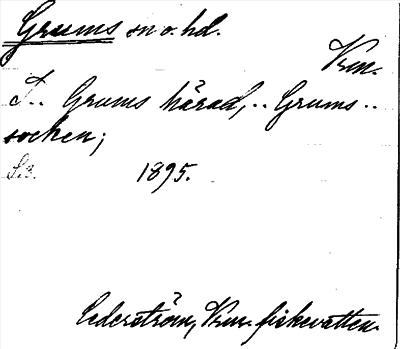 Grums sn o. hd.
Vrm.
I.. Grums härad, .. Grums ..
socken;
S.3. 1895.
Cederström, Vrm. fiskevatten.